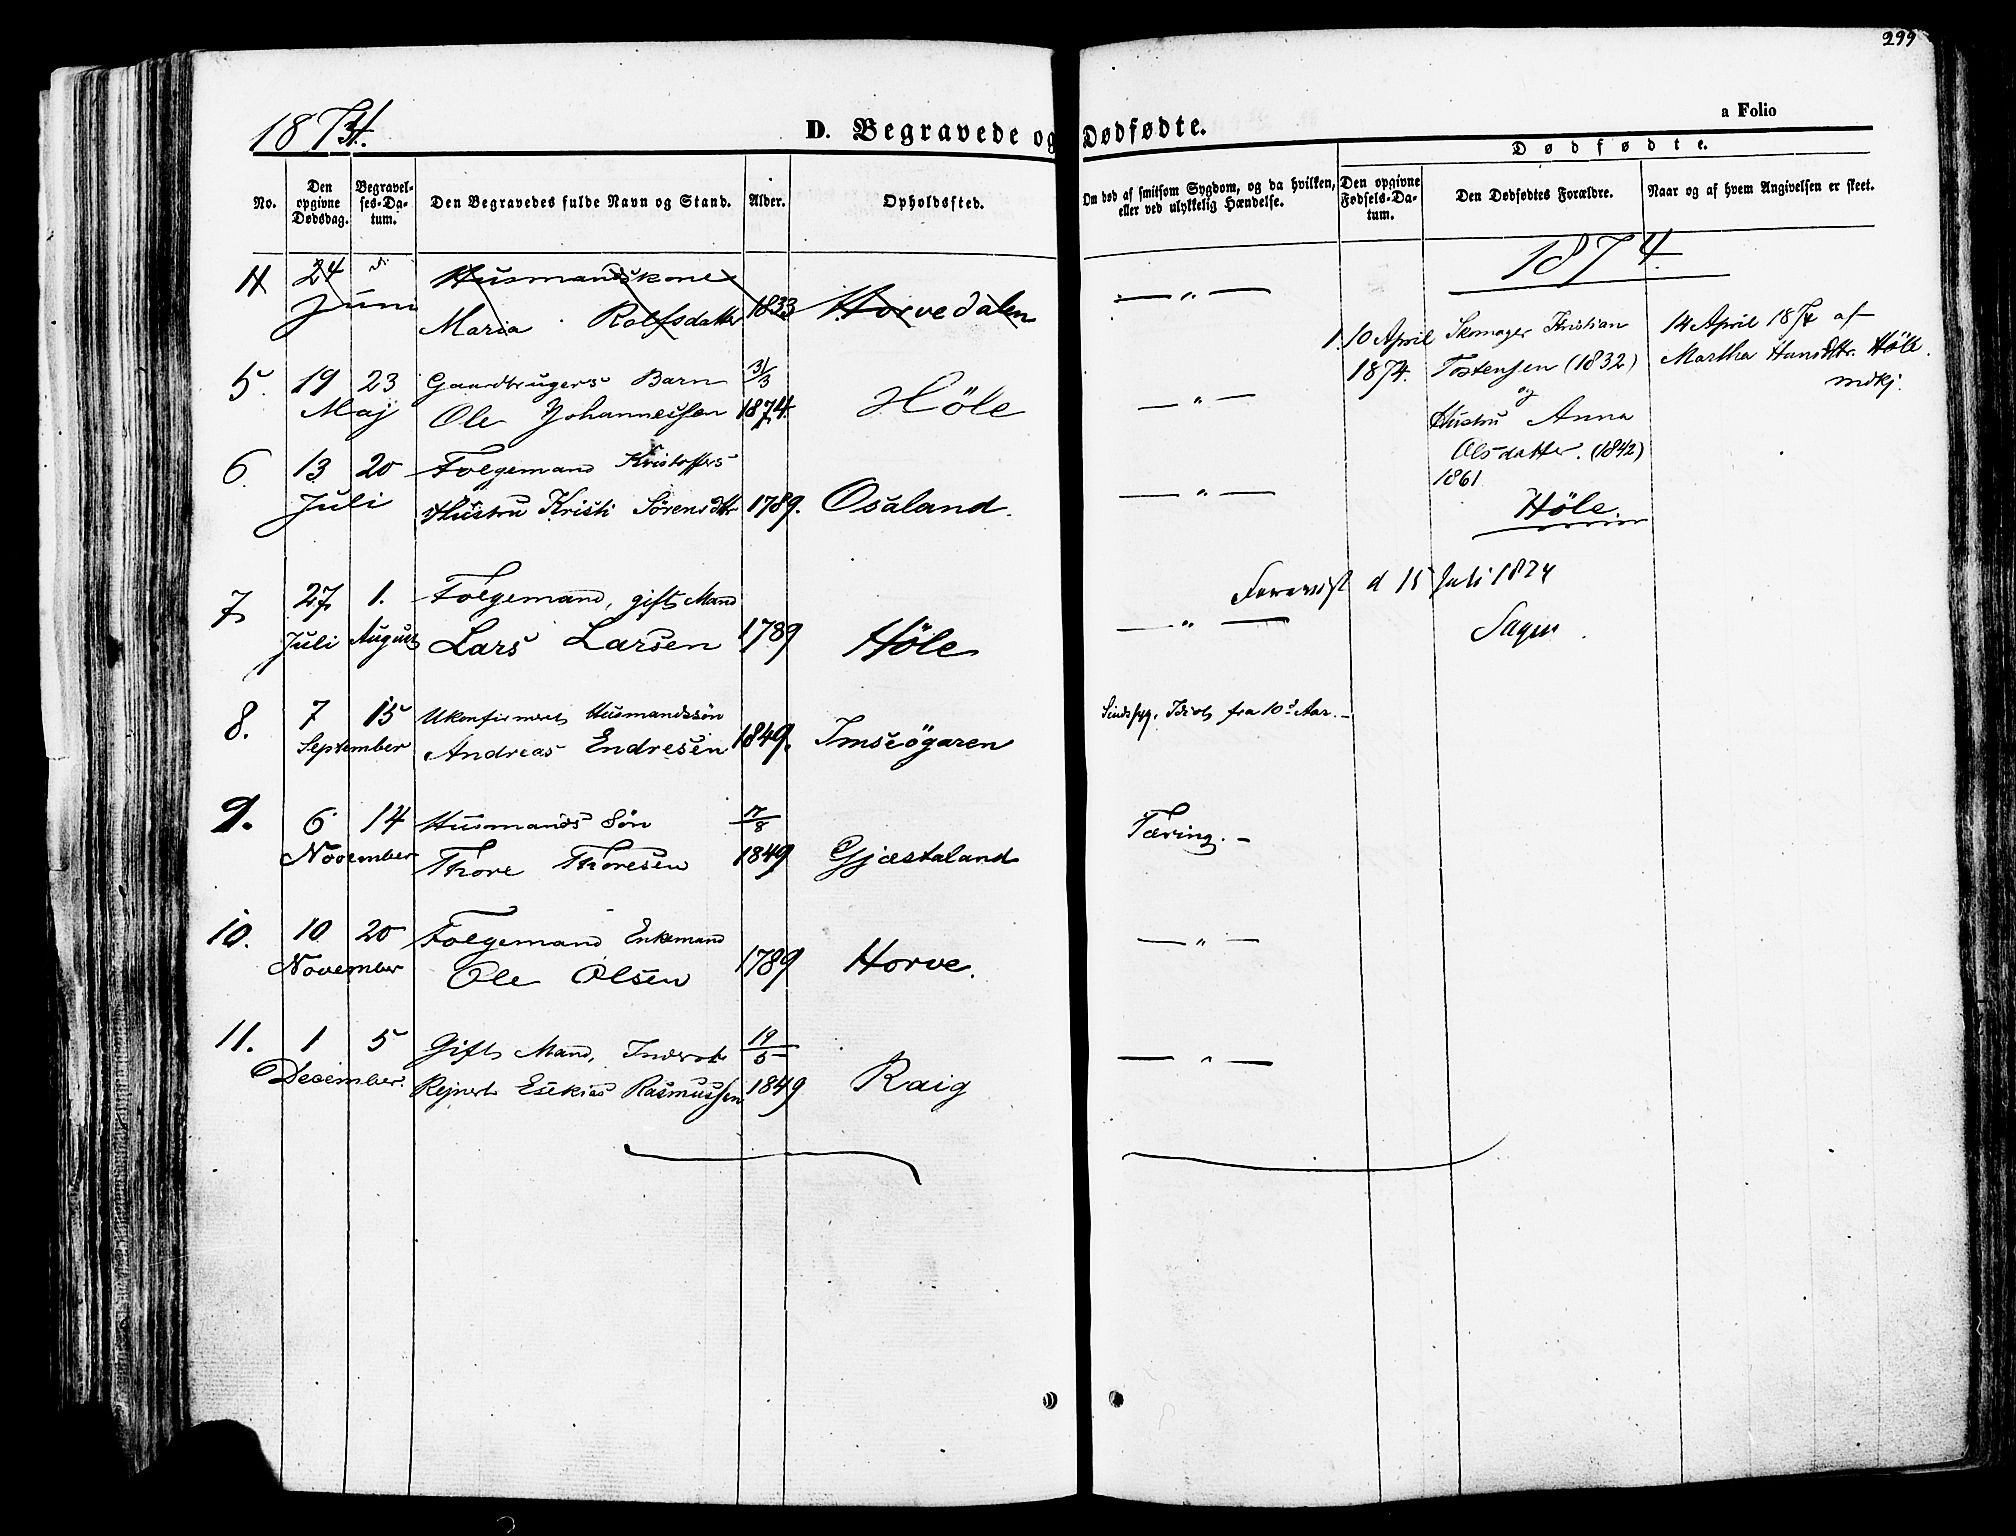 299
1874.
D. Begravede og Dødfødte.
a Folio
No.
Den opgivne Dødsdag.
Begravelses-Datum.
Den Begravedes fulde Navn og Stand.
Alder.
Opholdssted.
Om død af smitsom Sygdom, og da hvilken, eller ved ulykkelig Hændelse.
Dødfødte.
Den opgivne Fødsels-Datum.
Den Dødfødtes Forældre.
Naar og af hvem Angivelsen er skeet.
24 Juni Husmandskone
Maria Rolfsdatter 1833 Horvedalen — " —
5. 19 23 Gaardbrugers Barn 3/3
Maj Ole Johannessen 1874. Höle — " —
6. 13 20 Folgemand Kristoffers
Juli Hustru Kristi Sørensdtr 1789. Osaland. — " —
7 27 1. Folgemand, gift Mand
Juli August Lars Larsen 1789 Höle — " —
8. 7 15 Ukonfirmert Husmandssön
September Andreas Endresen 1849. Imseögaren
Sindssyg. Idiot fra 10d Aar. —
9. 6 14 Husmands Sön 7/8
November Thore Thoresen 1849 Gjæstaland
Tæring. —
10. 10 20 Folgemand Enkemand
November Ole Olsen 1789 Horve. — " —
11. 1 5 Gift Mand, Inderst 19/5
December. Rejnert Esekias Rasmussen 1849 Raig — " —
1874.
1. 10 April 1874.
Skomager Kristian
Tostensen (1832)
og
Hustru Anna
Olsdatter. (1842)
1861
Höle
14 April 1874 af
Martha Hansdtr. Höle.
d 15 Juli 1874